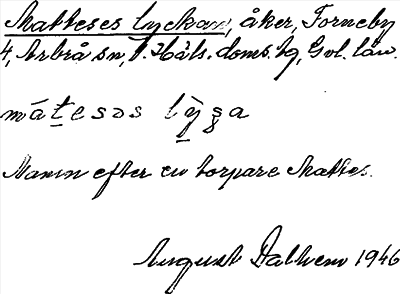 Matteses lyckan, åker, Forneby
4, Arbrå sn, V. Häls. doms., Gvl. län.
mátesəs
Namn efter en torpare Mattes.
August Dalhem 1946